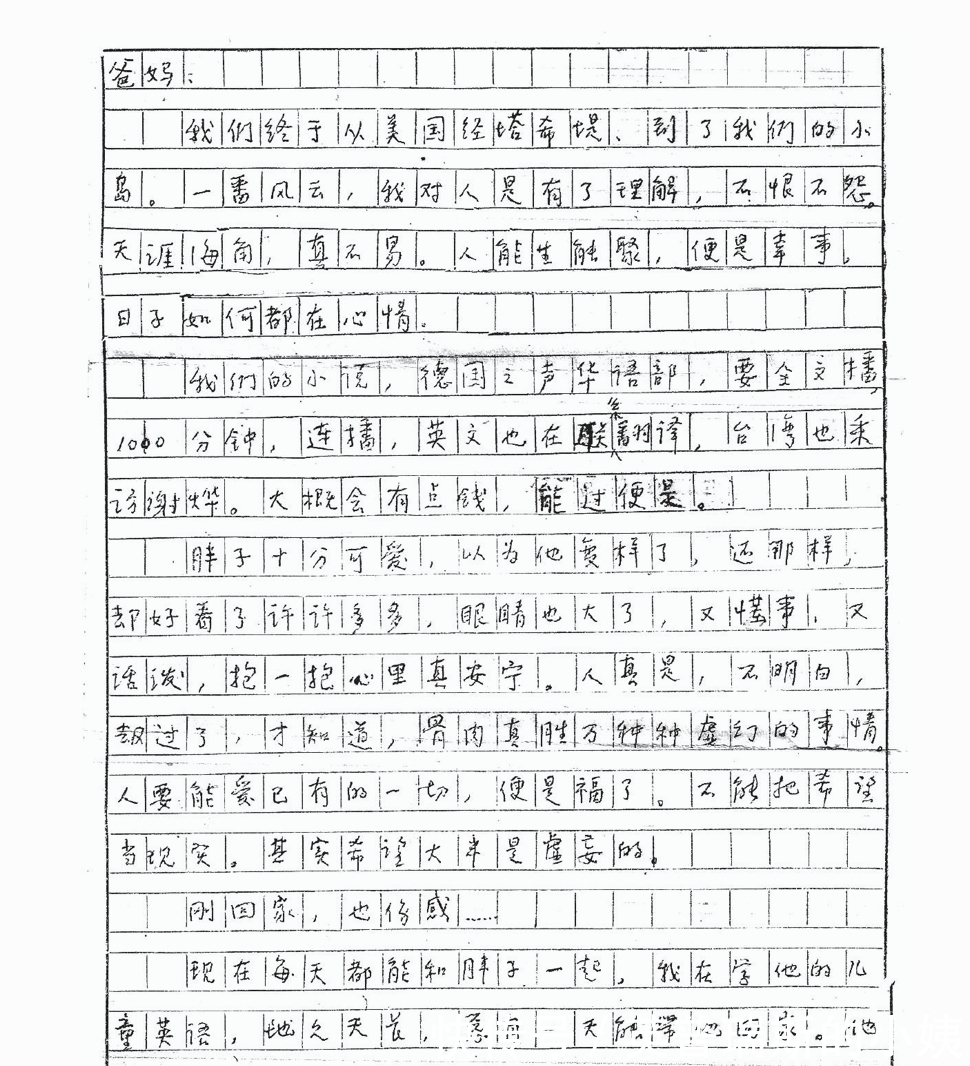 爸妈：
我们终于从美国经塔希堤、到了我们的小
岛。一番风云，我对人是有了理解，不恨不怨。
天涯海角，真不易。人能生能聚，便是幸事。
日子如何都在心情。
我们的小说，德国之声华语部，要全文播，
1000分钟，连播，英文也在联系翻译，台湾也采
访谢烨。大概会有点钱，能过便是。
胖子十分可爱，以为他变样了，还那样，
却好看了许许多多，眼睛也大了，又懂事，又
活泼，抱一抱心里真安宁。人真是，不明白，
都过了，才知道，骨肉真胜万种种虚幻的事情。
人要能爱已有的一切，便是福了。不能把希望
当现实。其实希望大半是虚妄的。
刚回家，也伤感……
现在每天都能和胖子一起，我在学他的儿
童英语，地久天长，总有一天能带他回家。他
小姨